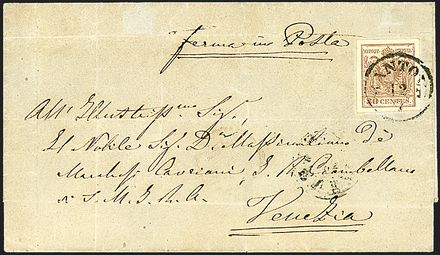 ferma in Posta
KKPOST-STEMPEL
30 CENTES.
MANTOVA
12
All' Illustriss.mo Sig.r
Il Nobile Sig. Dr. Massimiliano de
Marchesi Cavriani, I. R. Ciambellano
S. M. I. R. A.
Venezia